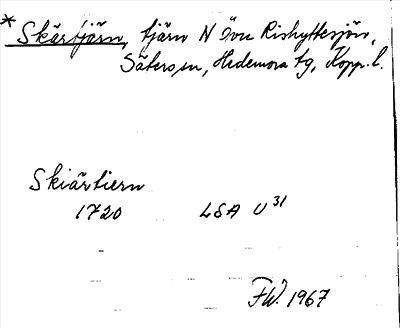 * Skärtjärn, tjärn N Övre Rishyttesjön,
Säters sn, Hedemora tg, Kopp. l.
Skiärtiern
1720 LSA U 31
F.W. 1967